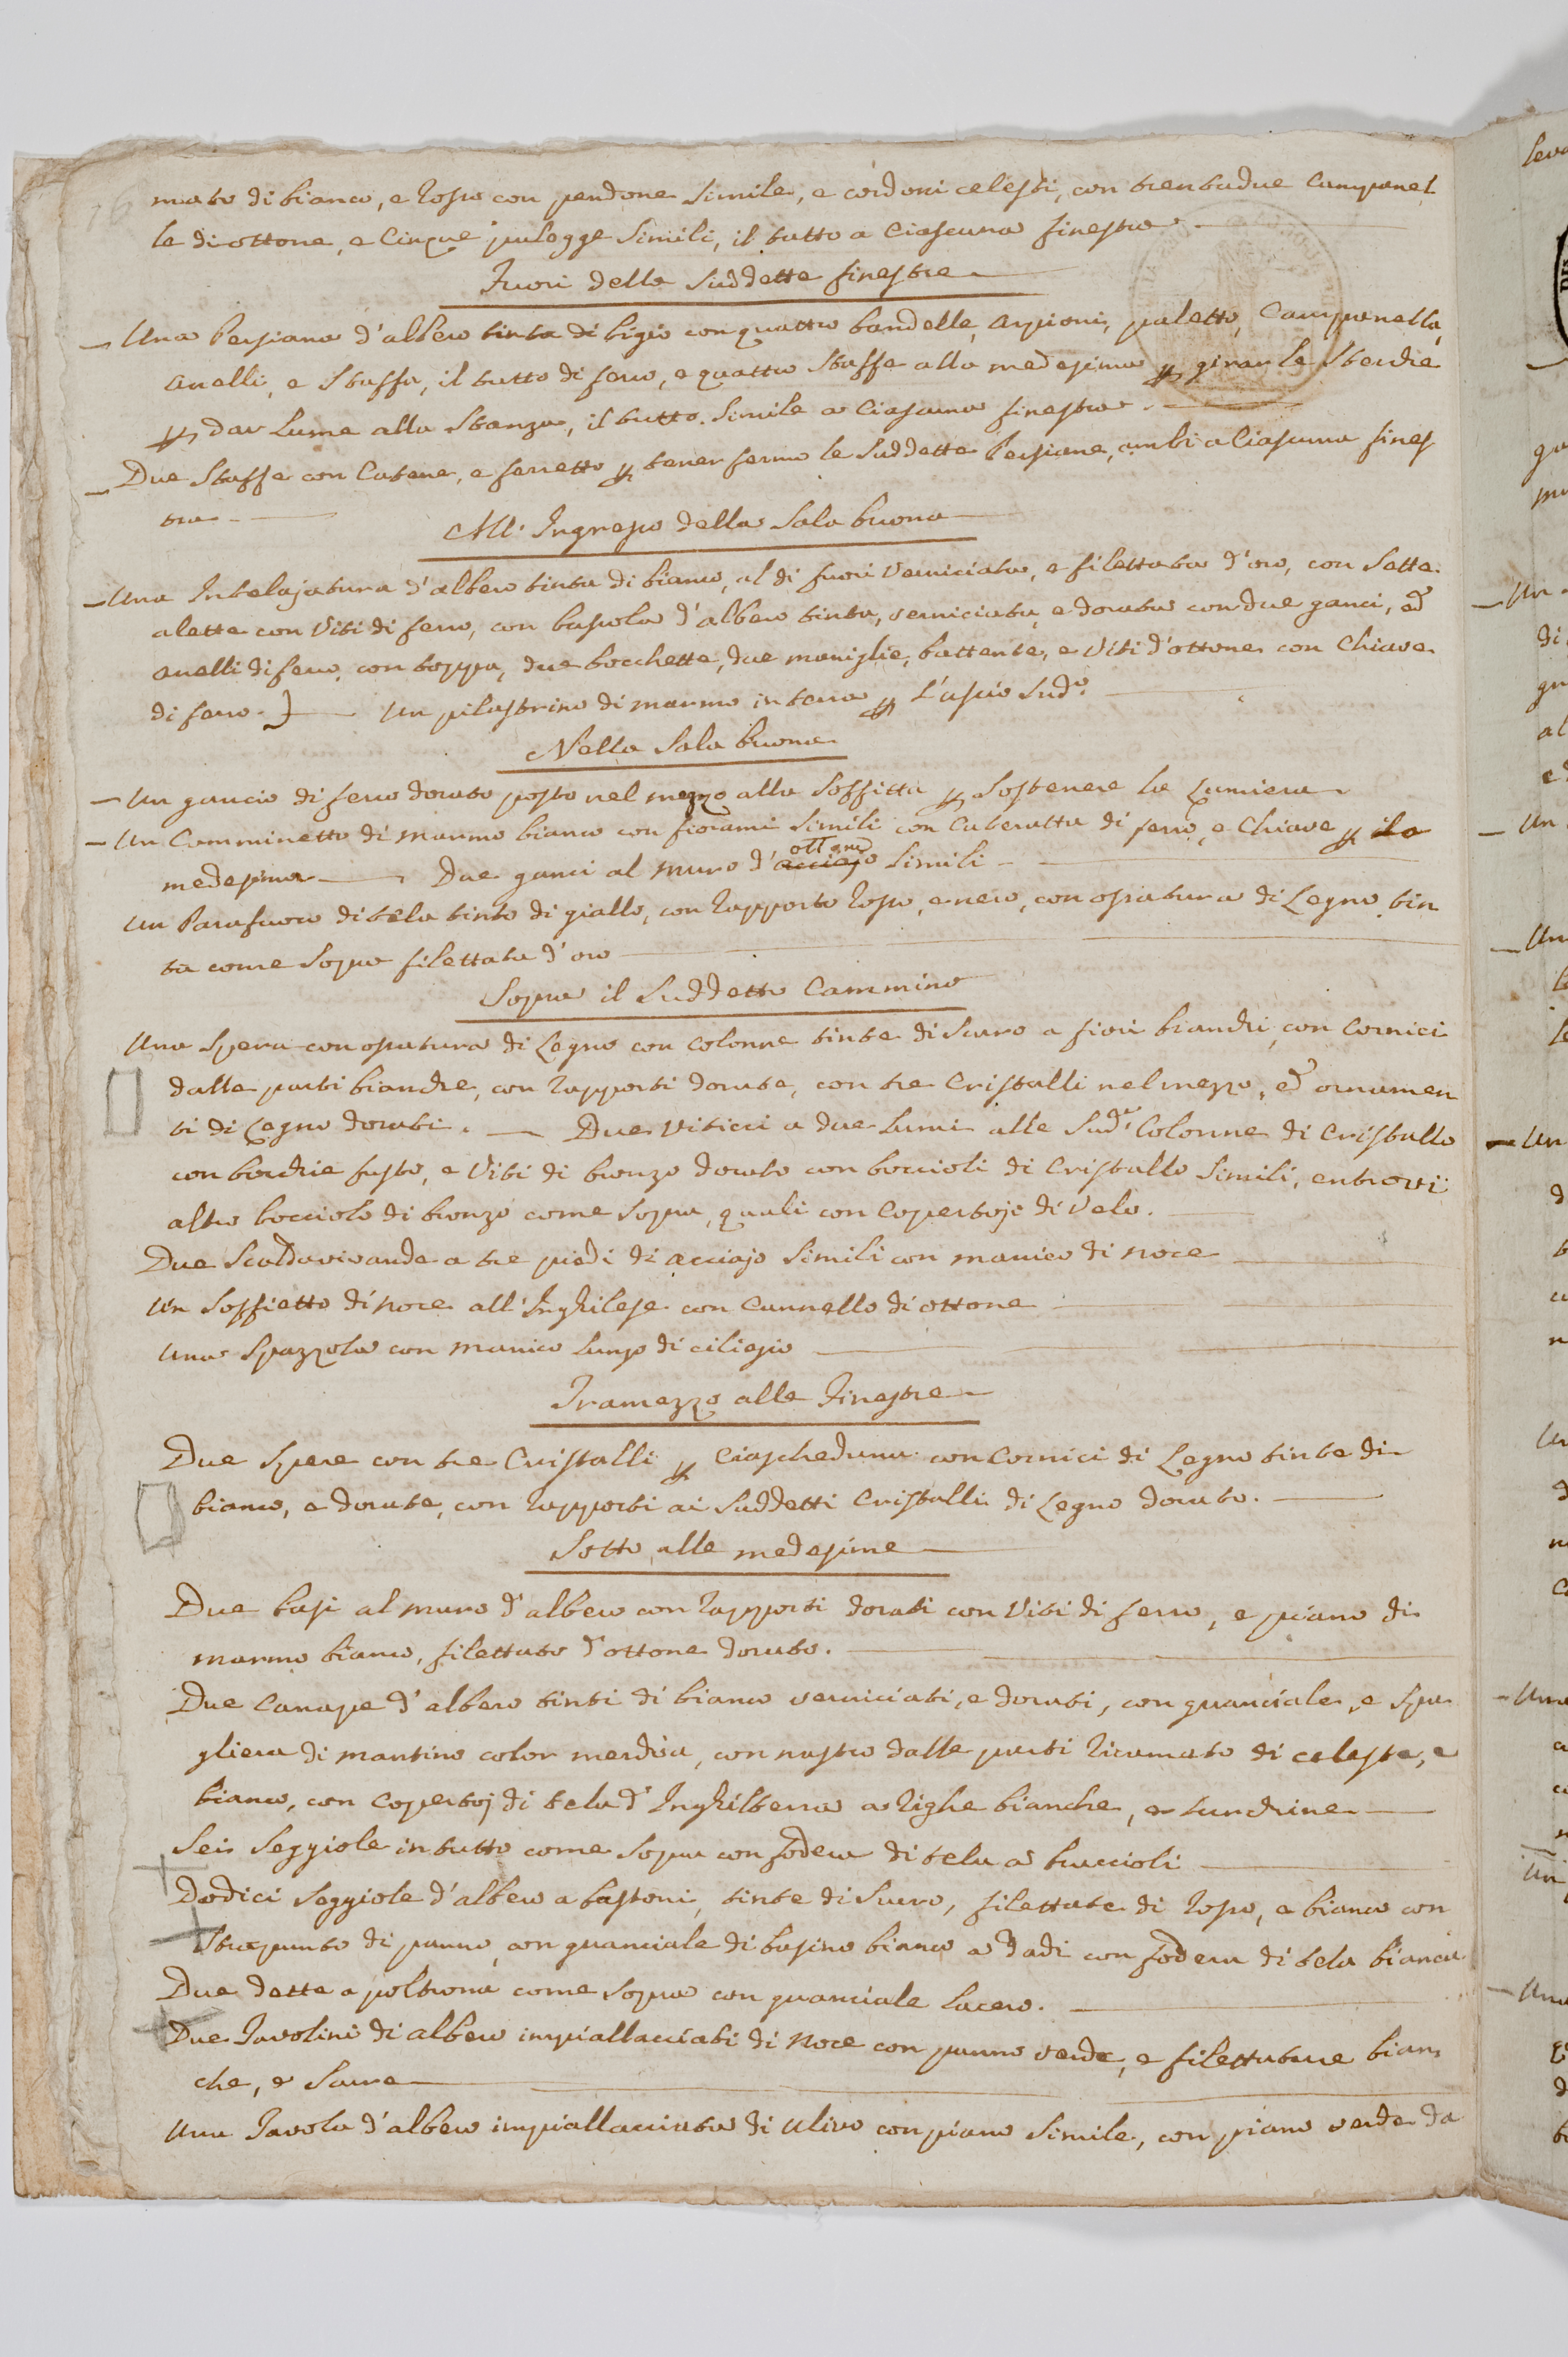 mato di bianco, e rosso con pendone simile, e cordoni celesti, con trentadue Campanel
le di ottone, e Cinque pulegge simili, il tutto a Ciascuna finestra
Fuori delle suddette finestre
Una Persiana d'albero tinta di bigio con quattro bandelle, arpioni, paletto, Campanella,
anelli, e staffa, il tutto di ferro, e quattro staffe alla medesima per girar le sterchie
per dar lume alla stanza, il tutto simile a Ciascuna finestra
Due staffe con Catene, e ferretto per tener ferme le suddette Persiane, ambi a Ciascuna fines
tra
All' Ingresso della Sala buona
Una Intelajatura d'albero tinta di bianco, al di fuori verniciata, e filettata d'oro, con sette
alette con viti di ferro, con bussola d'albero tinta, verniciata, e dorata con due ganci, ed
anelli di ferro, con toppa, due bocchette, due maniglie, battente, e viti d'ottone con Chiave
di ferro. Un pilastrino di marmo in terra per l'uscio sud.o
Nella Sala buona
Un gancio di ferro dorato posto nel mezzo alla soffitta per sostenere la lumiera
Un Camminetto di marmo bianco con fiorami simili con Cateratta di ferro, e Chiave per la
medesima Due ganci al muro d'acciajo ottone simili
Un Parafuoco di tela tinto di giallo, con rapporto rosso, e nero, con ossatura di Legno tin
ta come sopra filettata d'oro
Sopra il suddetto Cammino
Una spera con ossatura di Legno con Colonne tinte di scuro a fiori bianchi, con Cornici
dalle parti bianche, con rapporti dorate, con tre Cristalli nel mezzo, ed ornamen
ti di Legno dorati. Due viticci a due lumi alle sud.e Colonne di Cristallo
con borchie fusto, e viti di bronzo dorato con boccioli di Cristallo simili, entrovi
altro bocciolo di bronzo come sopra, quali con Copertoje di velo.
Due Scaldavivande a tre piedi di acciajo simili con manico di noce
Un soffietto di noce all'Inghilese con Cannello di ottone
Una Spazzola con manico lungo di ciliegio
Tramezzo alle Finestre
Due spere con tre Cristalli per Ciascheduna con Cornici di Legno tinte di
bianco, e dorate, con rapporti ai suddetti Cristalli di Legno dorato.
Sotto alle medesime
Due basi al muro d'albero con rapporti dorati con viti di ferro, e piano di
marmo bianco, filettato d'ottone dorato.
Due Canape d'albero tinti di bianco verniciati, e dorati, con guanciale, e spa
gliera di mantino color merdica, con nastro dalle parti ricamato di celeste, e
bianco, con copertoj di tela d'Inghilterra a righe bianche, e turchine
Sei seggiole in tutto come sopra con fodera di tela a braccioli
Dodici seggiole d'albero a bastoni, tinte di scuro, filettate di rosso, e bianco con
strapunto di panno, con guanciale di basino bianco a dadi con fodera di tela bianca
Due dette a poltrona come sopra con guanciale lacero.
Due Tavolini di albero impiallacciati di Noce con panno verde, e filettature bian
che, e scure
Una Tavola d'albero impiallacciata di ulivo con piano simile, con piano verde da